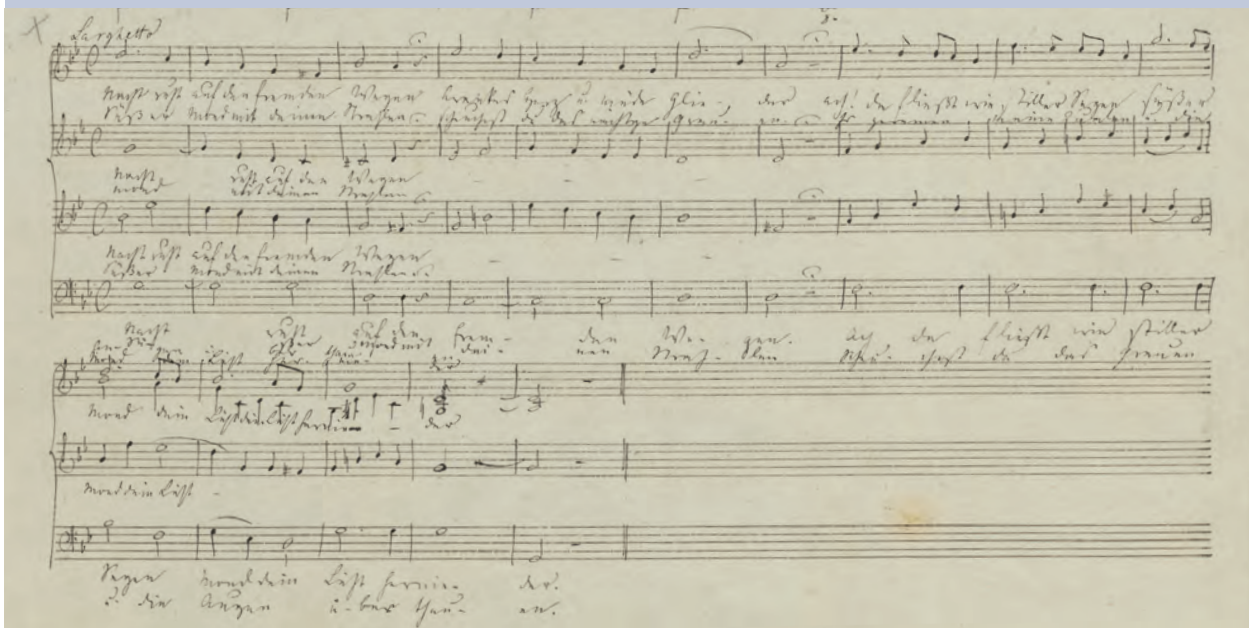 Larghetto
Nacht ruht auf den fremden Wegen krankes Herz u müde Glie- der ach! da fließt wie stiller Segen süßer
Süßer Mond mit deinen Strahlen scheuchest du das nächtge Grau- en es zerrinnen meine Qualen u. die
Nacht ruht auf den Wegen
Mond mit deinen Strahlen
Nacht ruht auf den fremden Wegen
Süßer Mond mit deinen Strahlen
Nacht ruht auf den frem- den We- gen. Ach da fließt wie stiller
Süßer Mond mit dei- nen Strah- len scheu- chest du das Grauen
Mond dein Licht dein Licht hernie- der
Mond dein Licht -
Segen Mond dein Licht hernie- der.
u. die Augen ü- ber thau- en.